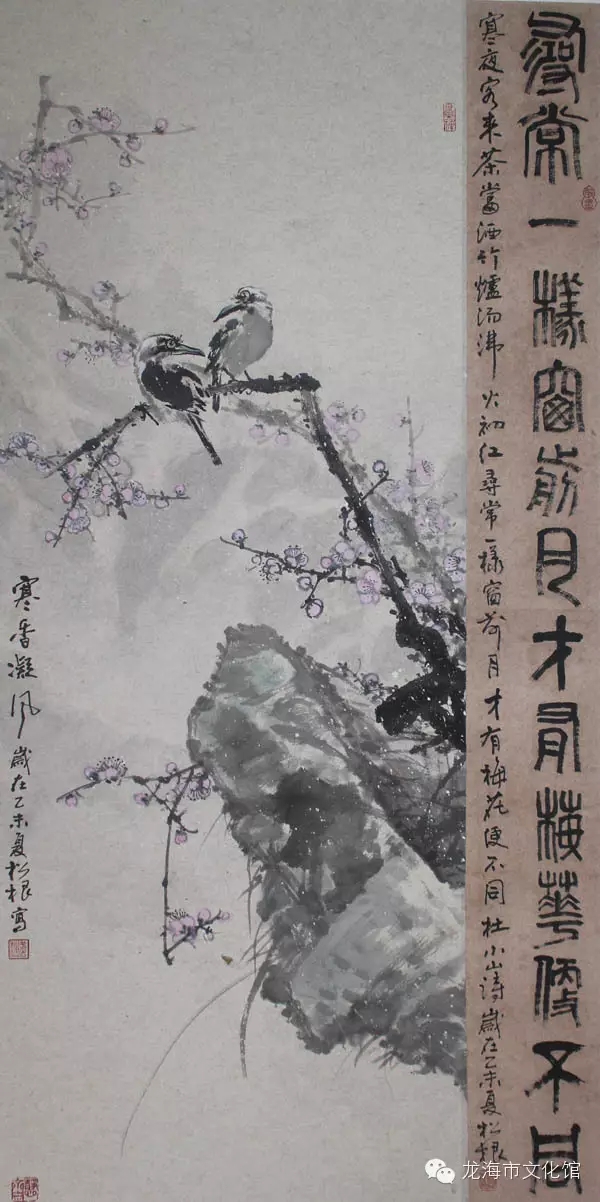 尋常一樣窗前月才有梅華便不同
寒夜客来茶當酒竹爐湯沸火初红尋常一樣窗前月才有梅花便不同杜小山詩歲在乙未夏松根
寒香凝风歲在乙未夏松根寫
龙海市文化馆